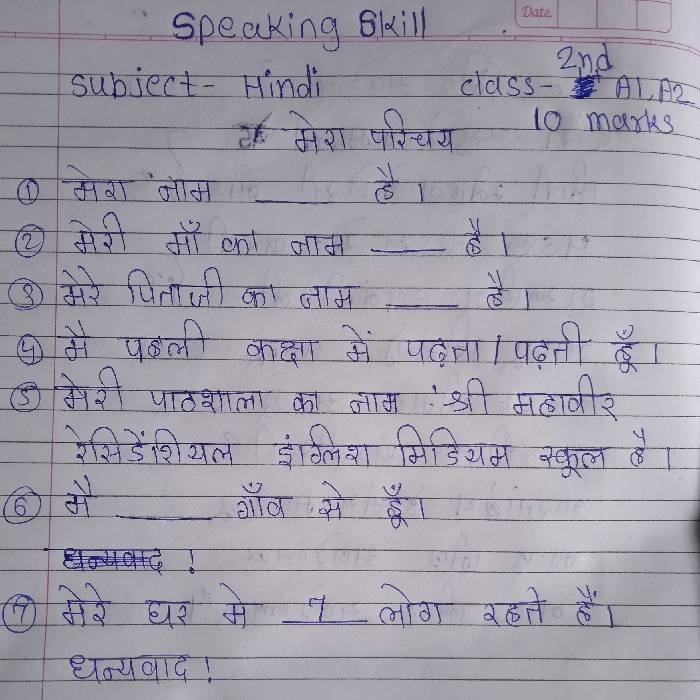 Date.
Speaking Skill
Subject- Hindi class- 2nd A1, A2
10 marks
मेरा परिचय
① मेरा नाम ____ है।
② मेरी माँ का नाम ____ है।
③ मेरे पिताजी का नाम ____ है।
④ मै पहली कक्षा में पढ़ता / पढ़ती हूँ।
⑤ मेरी पाठशाला का नाम : श्री महावीर
रेसिडेंशियल इंग्लिश मिडियम स्कूल है।
⑥ मै ____ गाँव से हूँ।
धन्यवाद !
⑦ मेरे घर मे 7 लोग रहते हैं।
धन्यवाद !